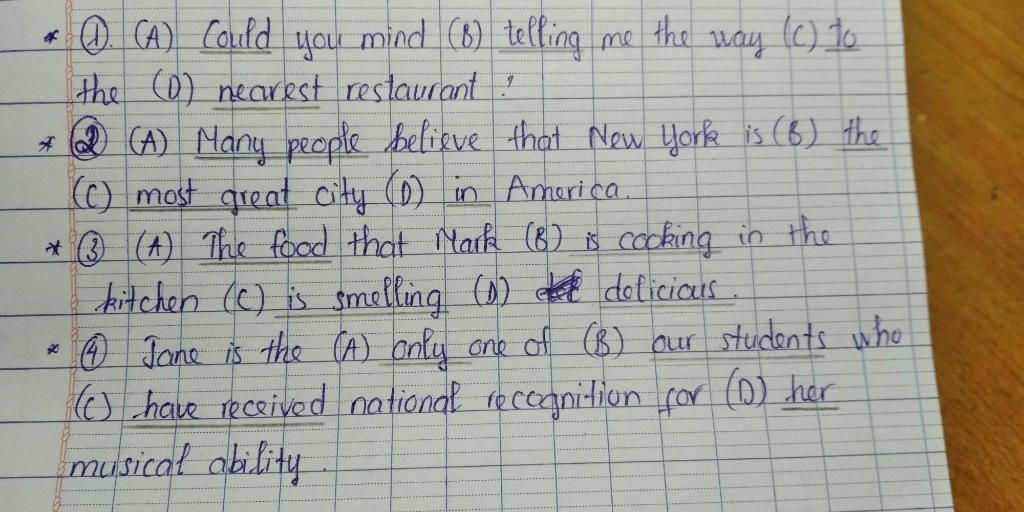 * ①. (A) Could you mind (B) telling me the way (C) to
the (D) nearest restaurant ?
* ② (A) Many people believe that New York is (B) the
(C) most great city (D) in America.
* ③ (A) The food that Mark (B) is cooking in the
kitchen (C) is smelling (D) delicious.
* ④ Jane is the (A) only one of (B) our students who
(C) have received national recognition for (D) her
musical ability.